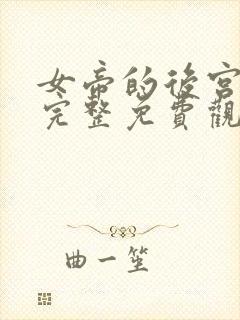 女帝的後宮
完整免費觀
曲一笙